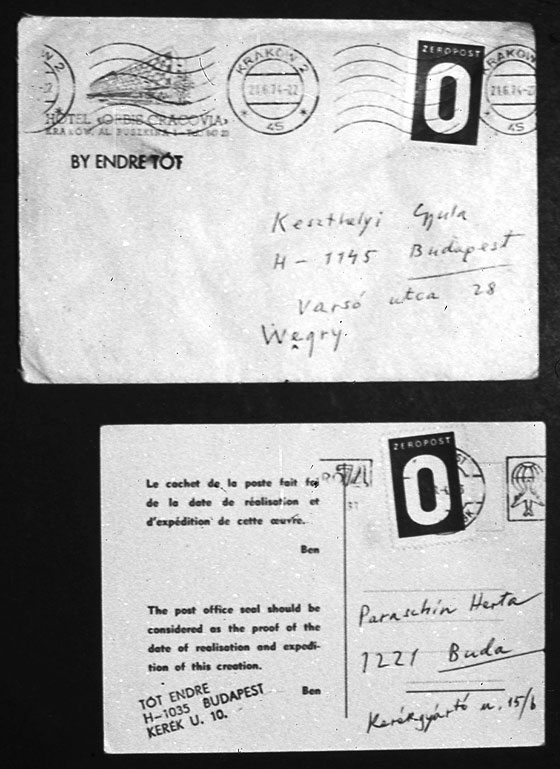 ZEROPOST
0
KRAKÓW 2
21.6.74-22
45
HOTEL «ORBIS-CRACOVIA»
KRAKÓW, AL. PUSZKINA 1 - Tel.
BY ENDRE TÓT
Keszthelyi Gyula
H - 1145 Budapest
Varsó utca 28
Węgry.
ZEROPOST
0
Le cachet de la poste fait foi
de la date de réalisation et
d'expédition de cette œuvre.
Ben
The post office seal should be
considered as the proof of the
date of realisation and expedi-
tion of this creation.
Ben
TÓT ENDRE
H-1035 BUDAPEST
KERÉK U. 10.
Paraschin Herta
1221 Buda
Kerékgyártó u. 15/b